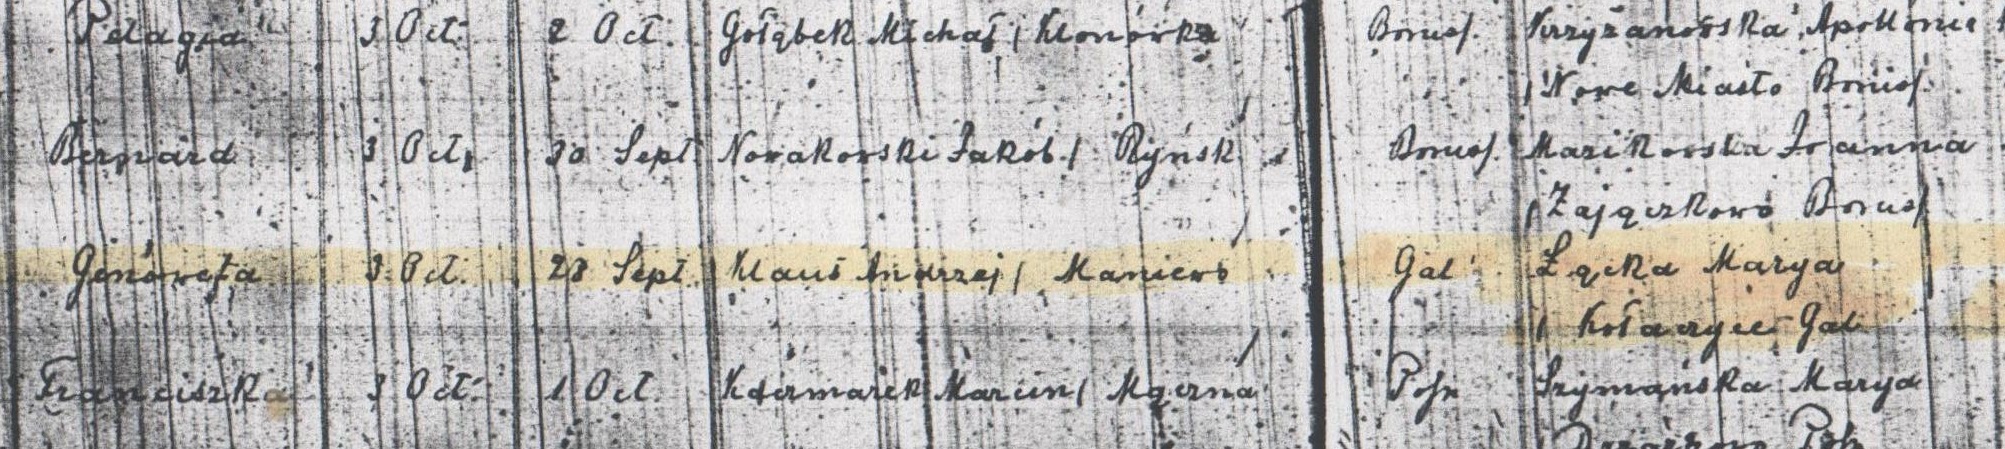 Pelagia 3 Oct. 2 Oct. Gołąbek Michał / Klonówka Boruss. Krzyżanowska Apollonia
/ Nowe Miasto Boruss.
Bernard 3 Oct. 30 Sept. Nowakowski Jakób / Ryńsk Boruss. Joanna
/ Zajączkowo Boruss.
Genowefa 3 Oct. 28 Sept. Klaus Andrzej / Maniewo Gal. Łącka Marya
/ Kołaczyce Gal.
Franciszka 3 Oct. 1 Oct. Kaczmarek Marcin / Mączna Posn Szymańska Marya
Posn